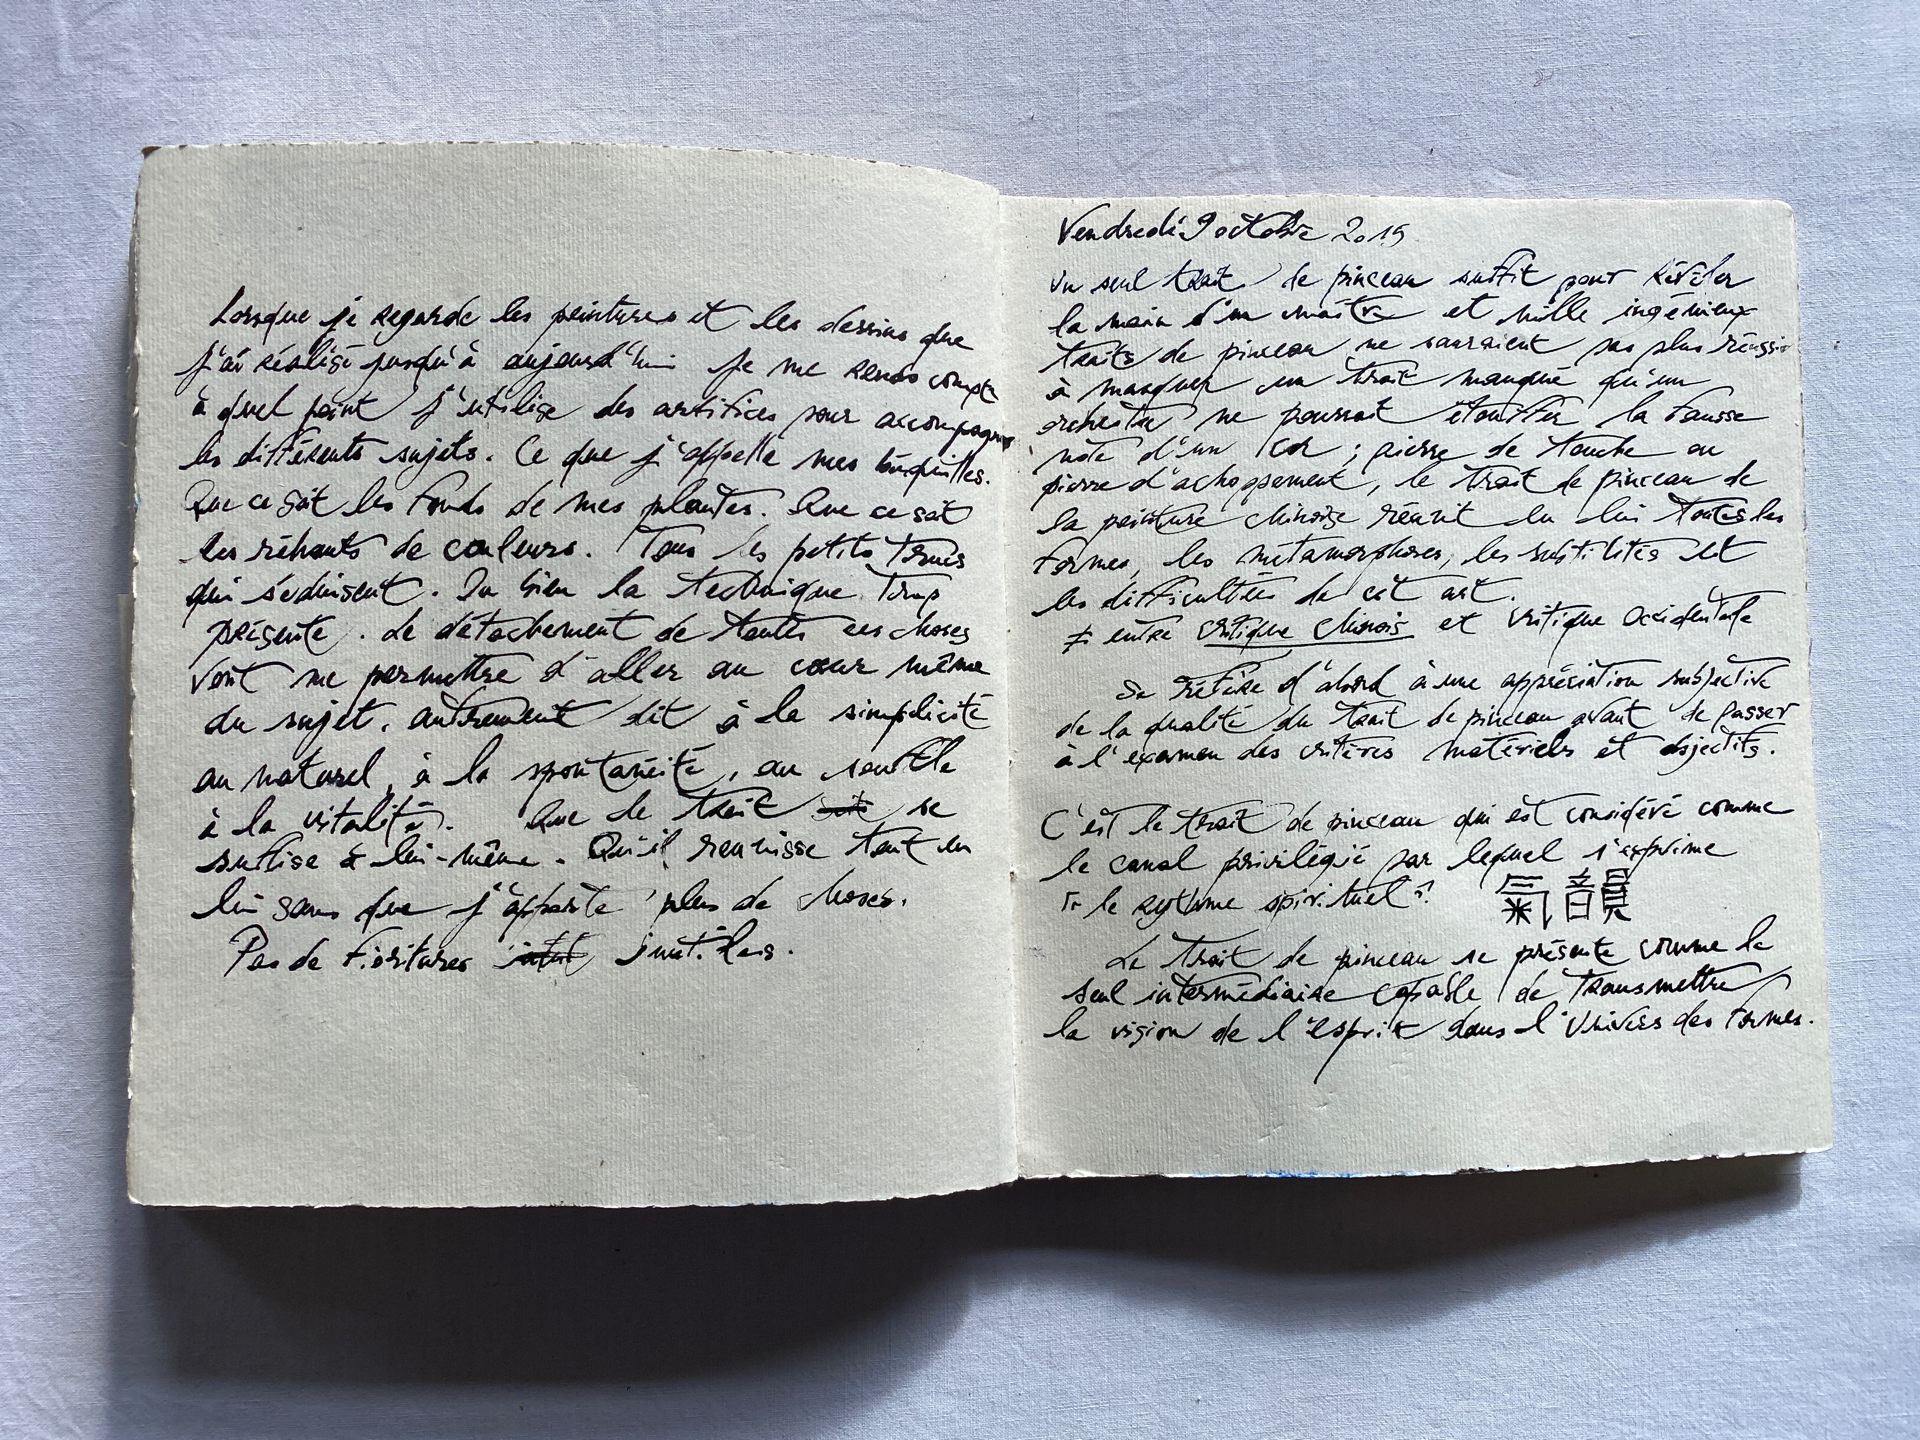 Lorsque je regarde les peintures et les dessins que
j'ai réalisé jusqu'à aujourd'hui je me rends compte
à quel point j'utilise des artifices pour accompagner
les différents sujets. Ce que j'appelle mes béquilles.
Que ce soit les fonds de mes plantes. Que ce soit
les réhauts de couleurs. Tous les petits trucs
qui séduisent. Ou bien la technique trop
présente. Le détachement de toutes ces choses
vont me permettre d'aller au cœur même
du sujet, autrement dit à la simplicité
au naturel, à la spontanéité, au souffle
à la vitalité. Que le trait se
suffise à lui-même. Qu'il reunisse tout en
lui sans que j'apporte plus de choses.
Pas de fioritures inutiles.
Vendredi 9 octobre 2015
Un seul trait de pinceau suffit pour révéler
la main d'un maître et mille ingénieux
traits de pinceau ne sauraient pas plus réussir
à masquer un trait manqué qu'un
orchestre ne pourrait étouffer la fausse
note d'un cor ; pierre de touche ou
pierre d'achoppement, le trait de pinceau de
la peinture chinoise réunit en lui toutes les
formes, les métamorphoses, les subtilités et
les difficultées de cet art.
≠ entre critique chinois et critique occidentale
Se réfère d'abord à une appréciation subjective
de la qualité du trait de pinceau avant de passer
à l'examen des critères matériels et objectifs.
C'est le trait de pinceau qui est considéré comme
le canal privilégié par lequel s'exprime
le rythme spirituel 氣韻
Le trait de pinceau se présente comme le
seul intermédiaire capable de transmettre
la vision de l'esprit dans l'univers des formes.